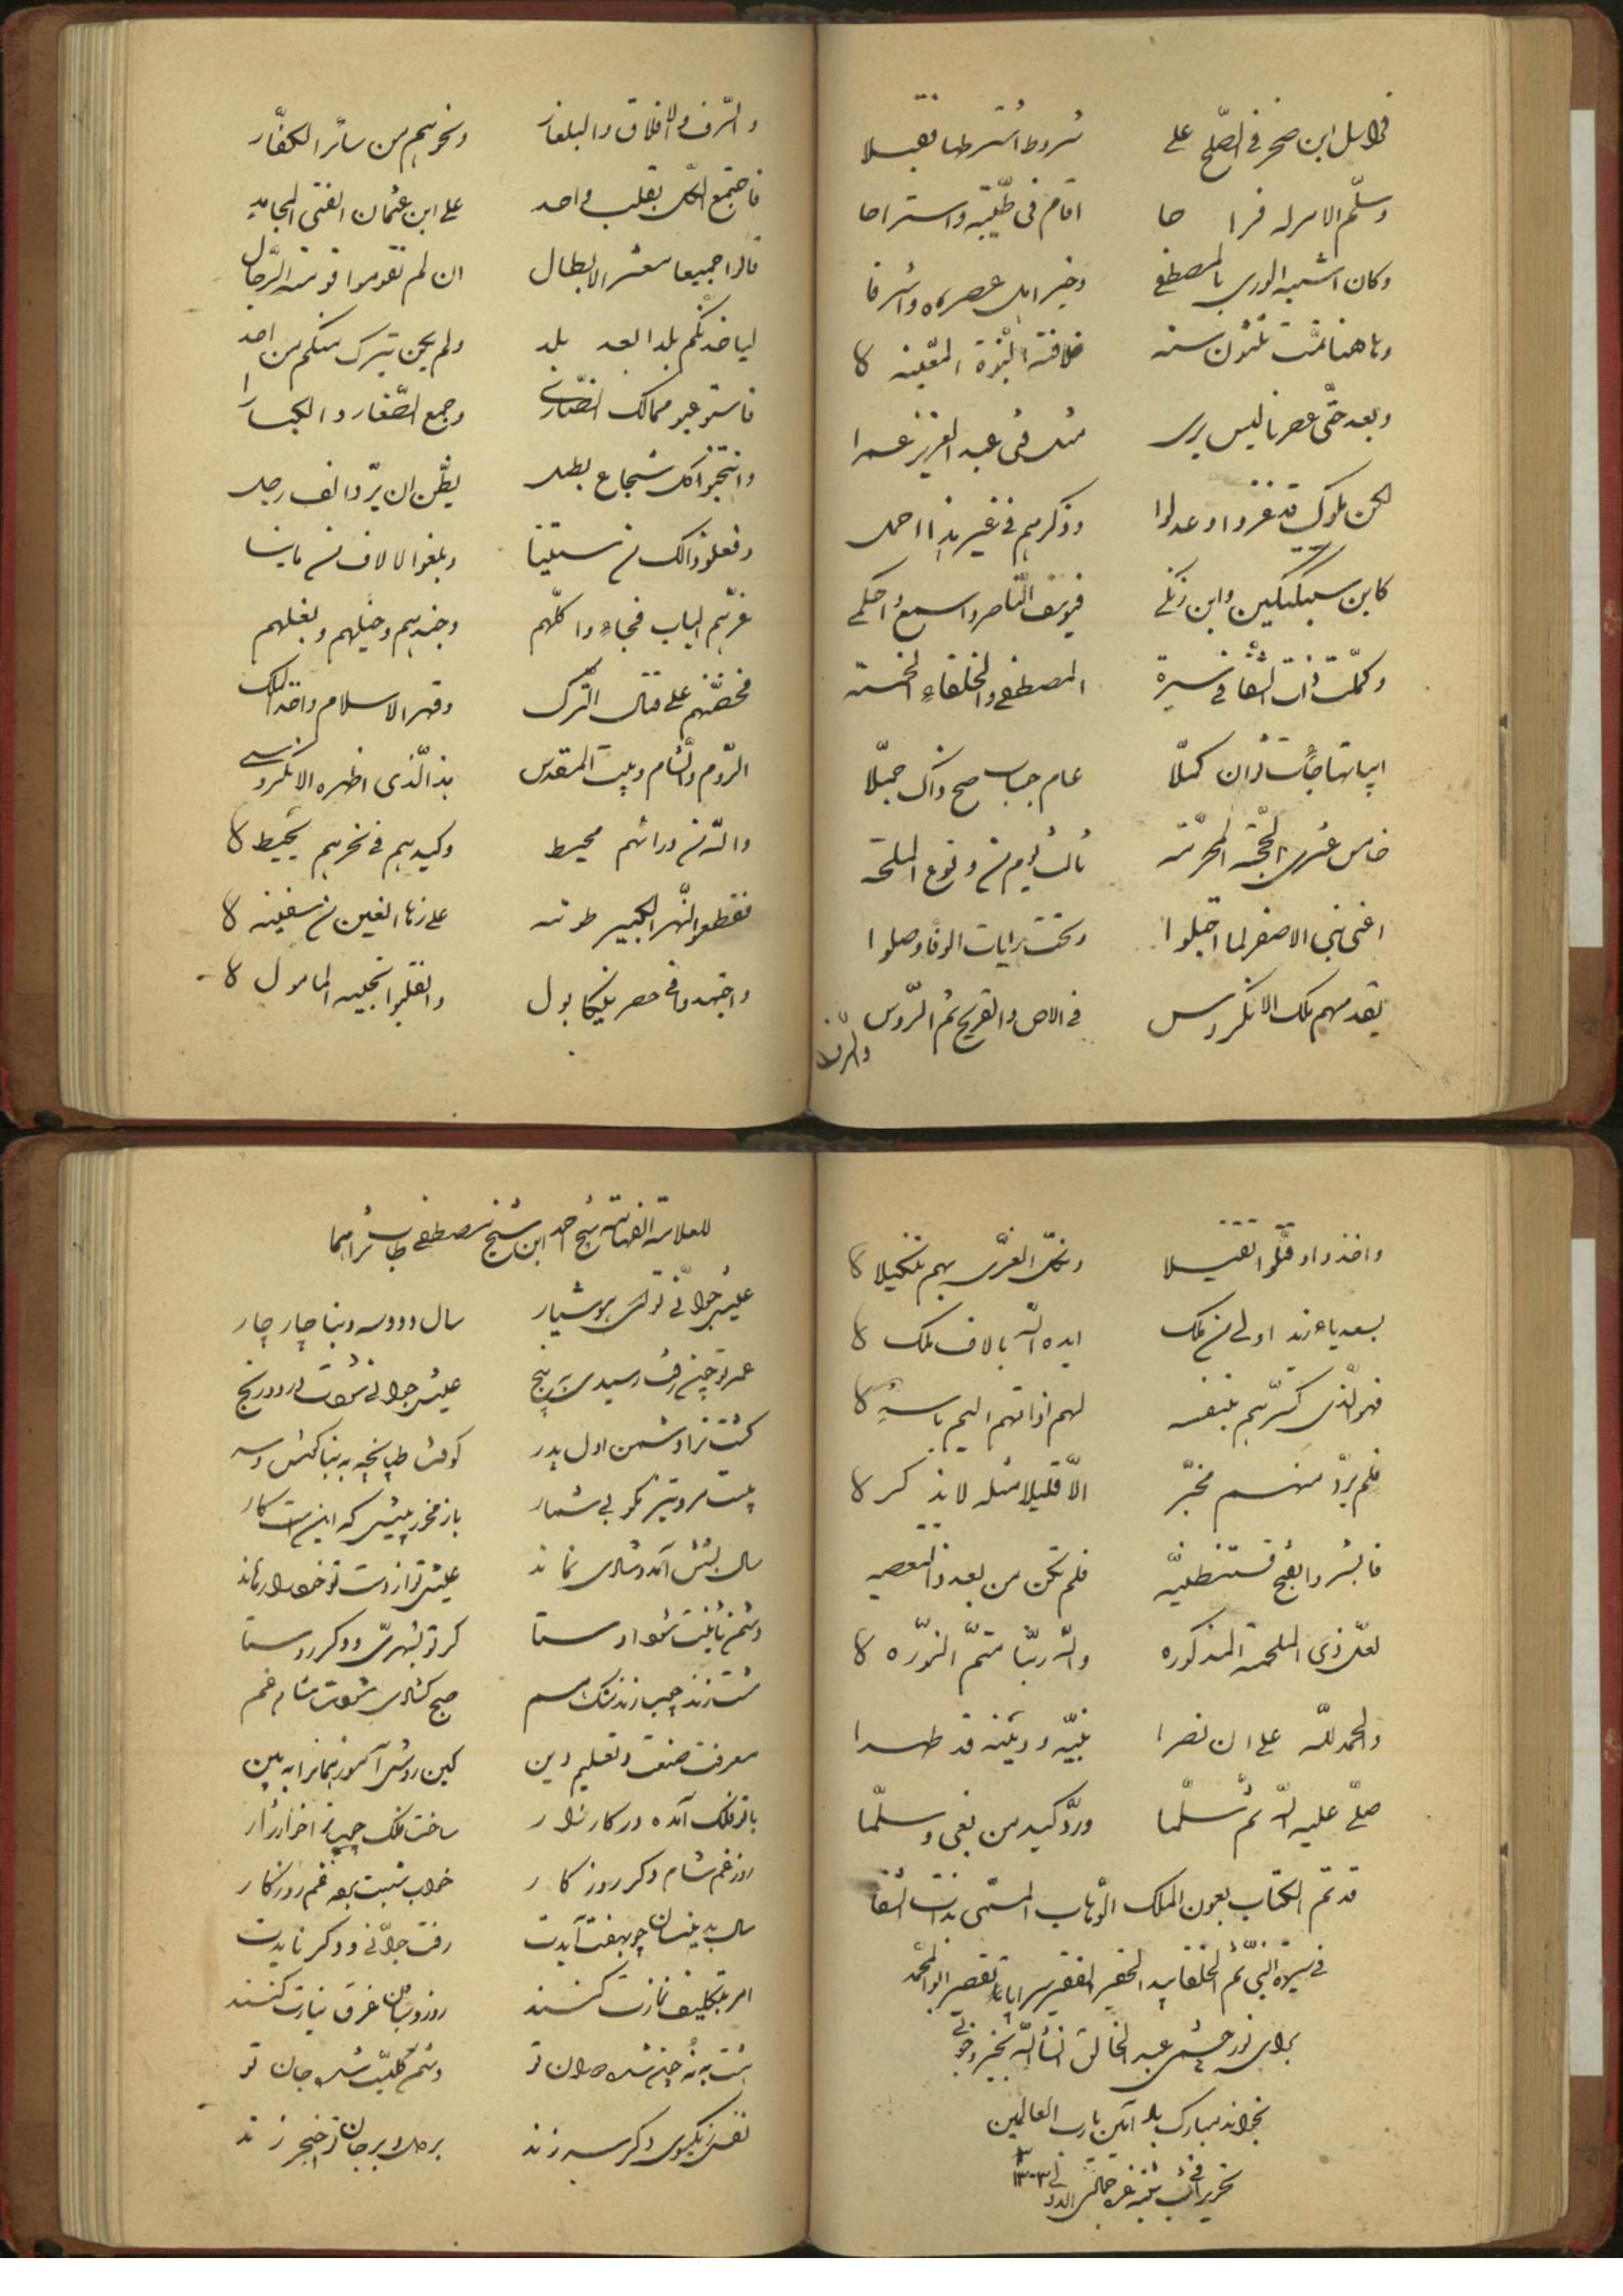 فراسل ابن صخر فی الصّلح علی شروط اشترطها فقبلا
وسلّم الامر له فراحا اقام فی طیبة واستراحا
وکان اشبه الوری بالمصطفی وخیر اهل عصره واشرفا
وهاهنا تمّت ثلثون سنه خلافة النبوّة المعیّنه
وبعد حتّی عصرنا لیس یری مثل فتی عبد العزیز عمرا
لکن ملوک قد غزوا وعدلوا وذکرهم فی غیر هذا احمل
کابن سبکتکین وابن زنکی فیوسف النّاصر واسمع واحکی
وکملت ذات الشفا فی سیرة المصطفی والخلفاء الخمسة
ابیاتها جاءت کملّا عام حساب صح ذاک جملّا
خامس عشری الحجّة المحرّمه ثالث یوم من وقوع الملحمه
اعنی بنی الاصفر لما اقبلوا وتحت رایات الوفا وصلوا
یقدمهم ملک الانکروس فی الاص والفریج ثم الرّوس
والرف والافلاق والبلغار ونحوهم من سائر الکفّار
فاجتمع الکل بقلب واحد علی ابن عثمان الفتی المجاهد
قالوا جمیعا معشر الابطال ان لم تقوموا قومة الرّجال
لیاخذنکم بلدا بعد بلد ولم یکن یترک منکم من احد
فاستوعبو ممالک النصّاری وجمع الصّغار والکبارا
وانتخبوا کل شجاع بطل یظّن ان یردّ الف رجل
وفعلو ذالک من سنینا وبلغوا الالاف من ماینا
غرّهم الباب فجاءوا کلّهم وجندهم وخیلهم وبغلهم
فحضّهم علی قتال الترک وقهر الاسلام واخذ الملک
الرّوم والشام وبیت المقدس هذا الّذی اظهره الانکروسی
والله من ورائهم محیط وکیدهم فی نحرهم یحیط
فقطعوا النّهر الکبیر طونه علی زها الفین من سفینه
واجتهدوا فی حصر نیکابول وانقلبوا بخیبه المامول
واخذوا وقتّلوا تقتیلا ونکل الغزّی بهم تنکیلا
بسعد بایزید اولی من ملک ایده الله بالاف ملک
فهو الّذی کسّرهم بنفسه لهم اذاقهم الیم باسه
فلم یردّ منهم مخبّر الّا قلیلا مثله لا یذکر
فابشر والفتح قسطنطنیّه فلم تکن من بعد ذا التعصیه
لعل ذی الملحمة المذکوره والله ربّنا متمّ النورّه
والحمد لله علی ان نصرا نبیّه ودینه قد طهرا
صلّی علیه الله ثم سلّما وردّ کید من بغی وسلّما
قد تم الکتاب بعون الملک الوّهاب المسمّی بذات الشفا
فی سیرة النبی ثم الخلفا بید الحقیر الفقیر سراپا تقصیر
برای نور چشمی عبد الخالق انشأ الله بخیر وخوبی
بخواند مبارک باد آمین یارب العالمین
تحریر فی
للعلامة الفهامة شیخ احمد ابن شیخ مصطفی طاب ثراهما
عیش جوانی تو کی هوشیار سال دو و سه و بنا چار چار
عمر تو چون رفت رسیدی به پنج عیش جوانی شودت درد و رنج
کشت ترا دشمن اول پدر کوفت طپانچه به بناکوش و سر
بازمخور پیش که این است کار
سال بشش آمد و شادی نماند عیش تو از دست تو خود را رهاند
دشمن ثانیت شود اوستا کر تو بشهریّ و دکر روستا
مشت زند چوب زند سنک هم صبح کشادی شودت شام غم
معرفت صنعت و تعلیم دین کین روش آموز نما نرا به بین
با تو فلک آمده در کارزار ساخت فلک چوب
روز غم شام دکر روزکار خواب شبت بهر غم روزکار
سال بدینسان چو بهفت آیدت رفت جوانّی و دکر نایدت
امر بتکلیف نمازت کنند روز و شبان غرق نیازت کنند
هشت به نه چون شد دوران تو دشمن کلیّت شد جان تو
نفس زیکسوی دکر سر زند بر دل و بر جان تو خنجر زند